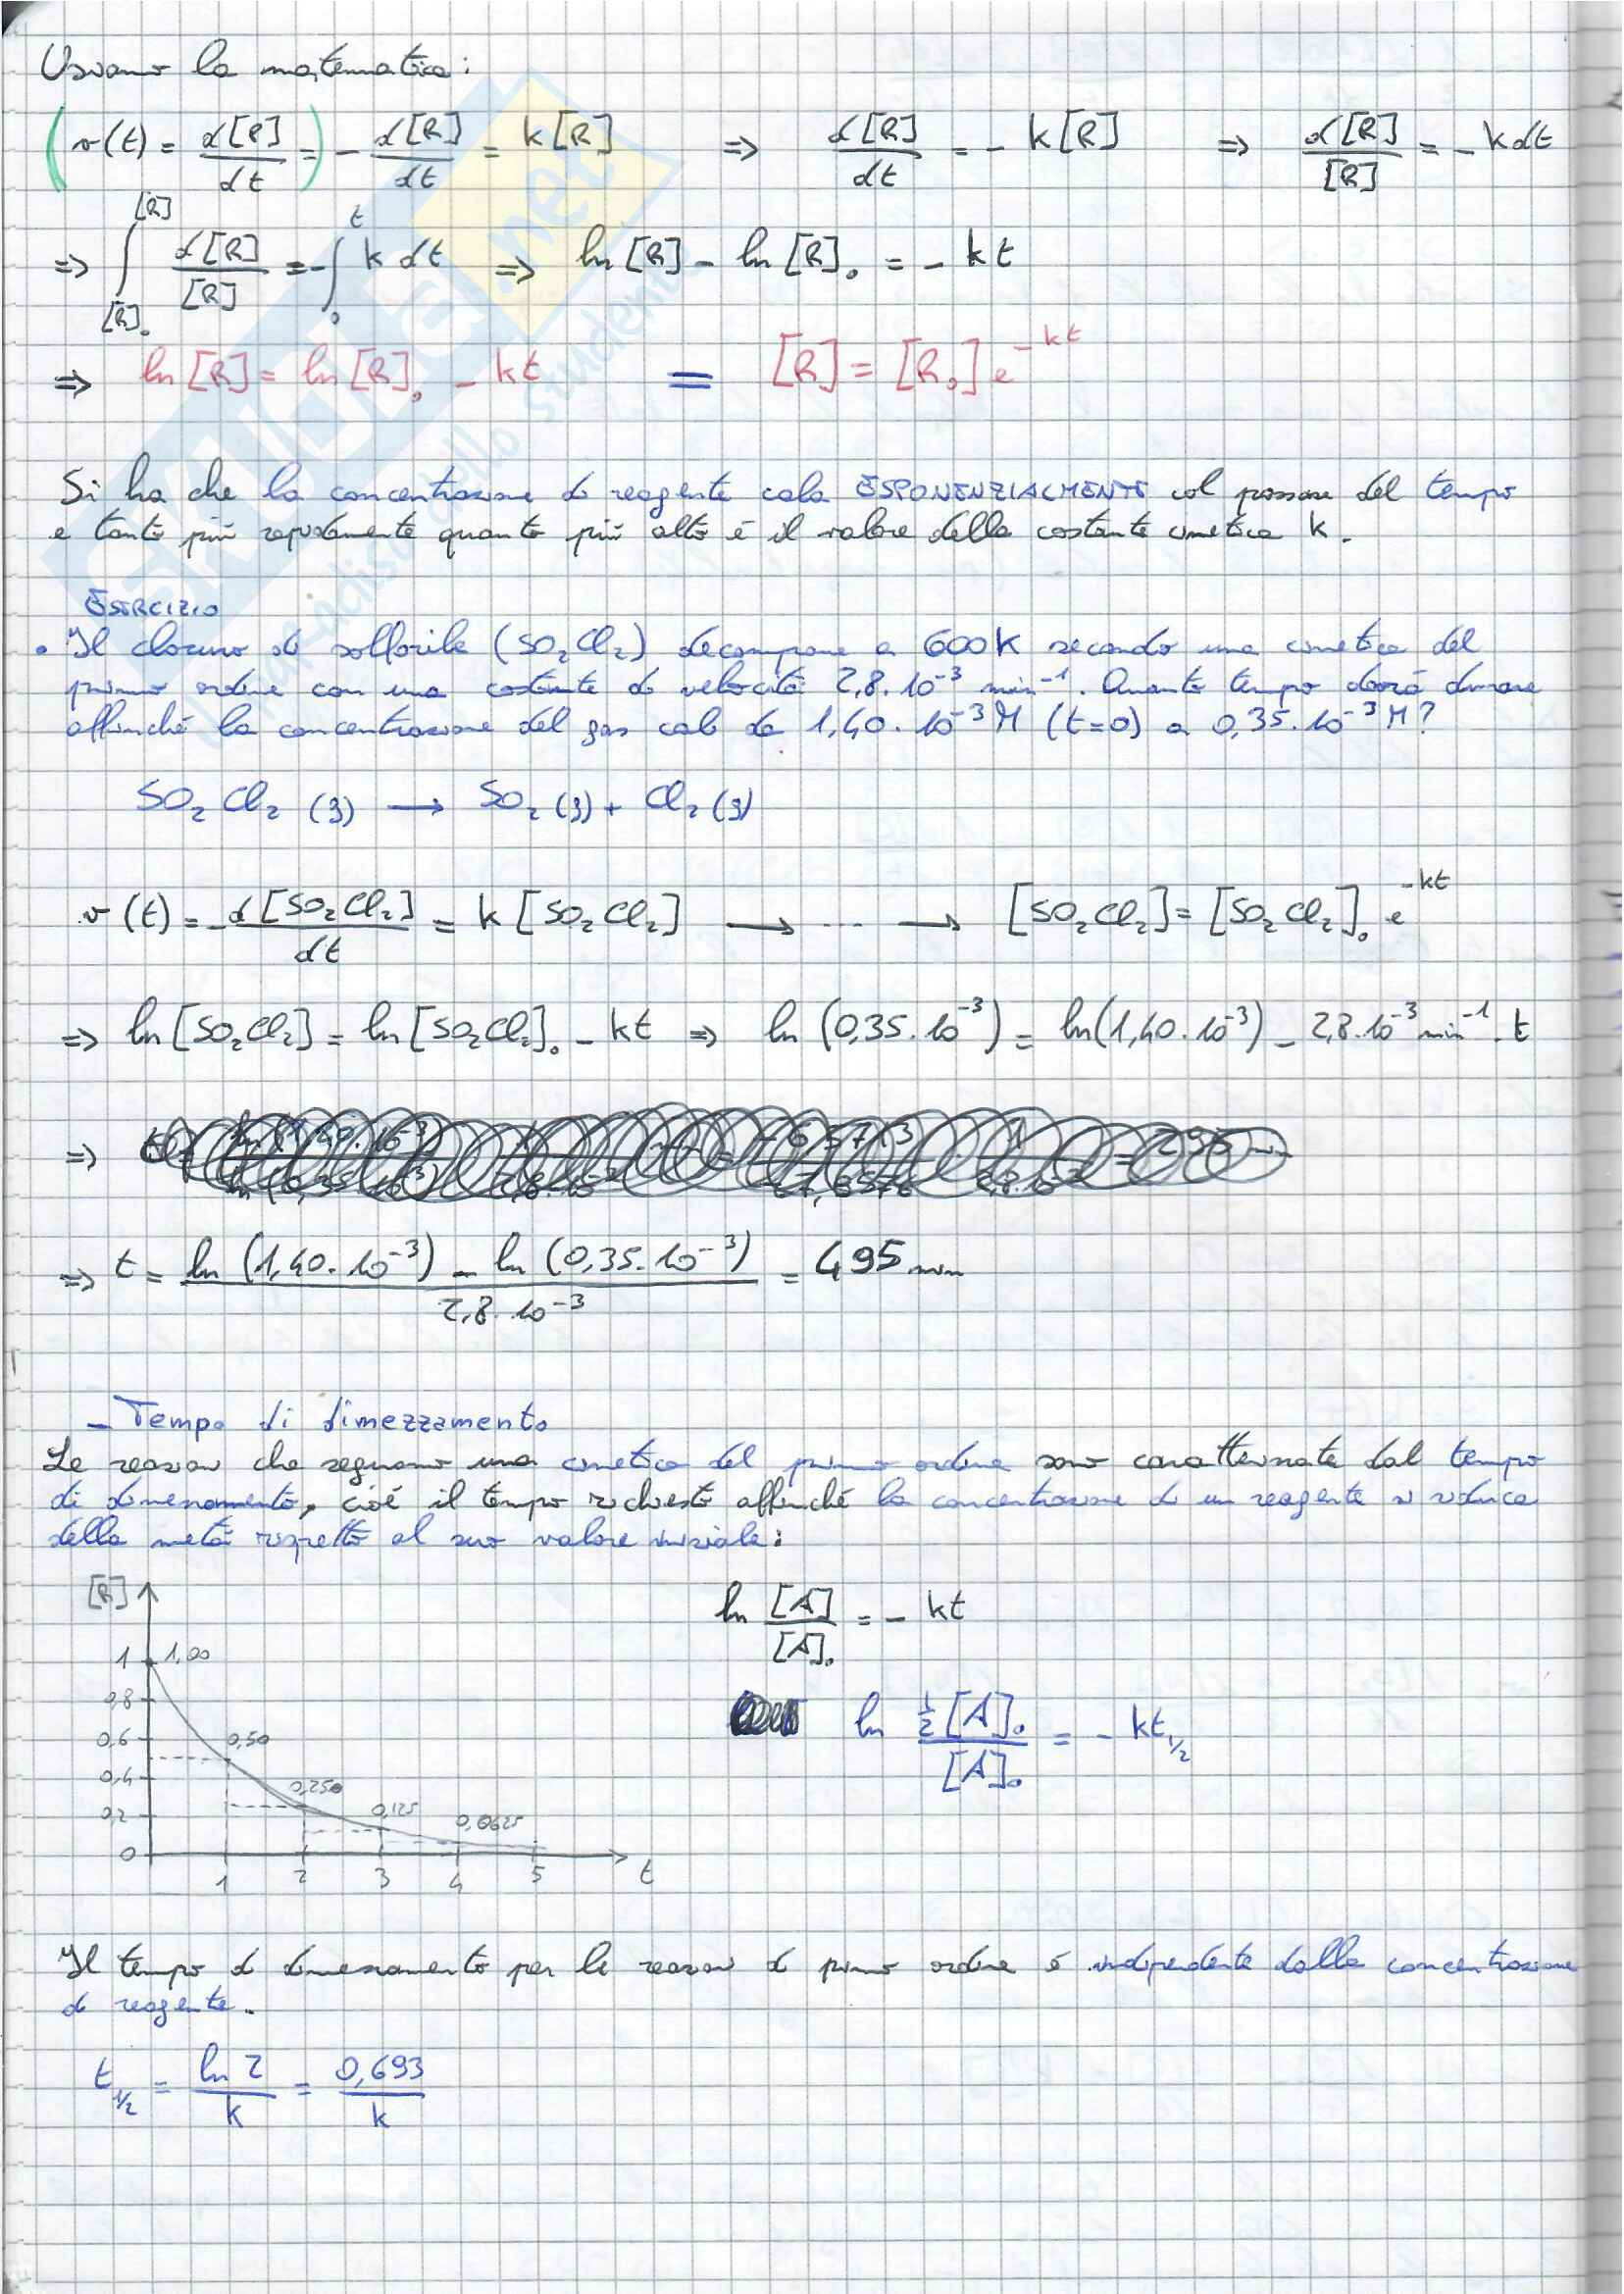 Usiamo la matematica:
(v(t) = d[P]/dt =) - d[R]/dt = k[R] ⇒ d[R]/dt = - k[R] ⇒ d[R]/[R] = - k dt
⇒ ∫[R]₀^[R] d[R]/[R] = - ∫₀^t k dt ⇒ ln[R] - ln[R]₀ = - kt
⇒ ln[R] = ln[R]₀ - kt = [R] = [R₀] e^-kt
Si ha che la concentrazione di reagente cala ESPONENZIALMENTE col passare del tempo
e tanto più rapidamente quanto più alto è il valore della costante cinetica k.
ESERCIZIO
• Il cloruro di solforile (SO₂Cl₂) decompone a 600K secondo una cinetica del
primo ordine con una costante di velocità 2,8·10⁻³ min⁻¹. Quanto tempo dovrà durare
affinché la concentrazione del gas cali da 1,40·10⁻³M (t=0) a 0,35·10⁻³M?
SO₂Cl₂(g) → SO₂(g) + Cl₂(g)
v(t) = - d[SO₂Cl₂]/dt = k[SO₂Cl₂] → ... → [SO₂Cl₂] = [SO₂Cl₂]₀ e^-kt
⇒ ln[SO₂Cl₂] = ln[SO₂Cl₂]₀ - kt ⇒ ln(0,35·10⁻³) = ln(1,40·10⁻³) - 2,8·10⁻³ min⁻¹ · t
⇒
⇒ t = ln(1,40·10⁻³) - ln(0,35·10⁻³) / 2,8·10⁻³ = 495 min
- Tempo di dimezzamento
Le reazioni che seguono una cinetica del primo ordine sono caratterizzate dal tempo
di dimezzamento, cioè il tempo richiesto affinché la concentrazione di un reagente si riduca
della metà rispetto al suo valore iniziale:
[R]
1
1,00
0,8
0,6
0,50
0,4
0,250
0,2
0,125
0,0625
0
1 2 3 4 5 t
ln [A]/[A]₀ = - kt
ln ½[A]₀/[A]₀ = - kt₁/₂
Il tempo di dimezzamento per le reazioni di primo ordine è indipendente dalla concentrazione
di reagente.
t₁/₂ = ln 2/k = 0,693/k